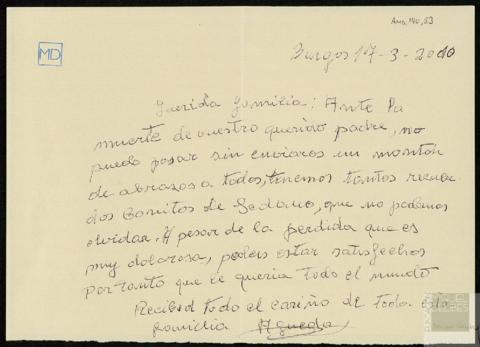 AMD, 140, 53
MD
Burgos 17-3-2010
Querida familia: Ante la
muerte de vuestro querido padre, no
puedo pasar sin enviaros un montón
de abrazos a todos, tenemos tantos recuer
dos bonitos de Sedano, que no podemos
olvidar. A pesar de la perdida que es
muy dolorosa, podeis estar satisfechos
por tanto que le queria todo el mundo
Recibid todo el cariño de toda esta
familia Agueda